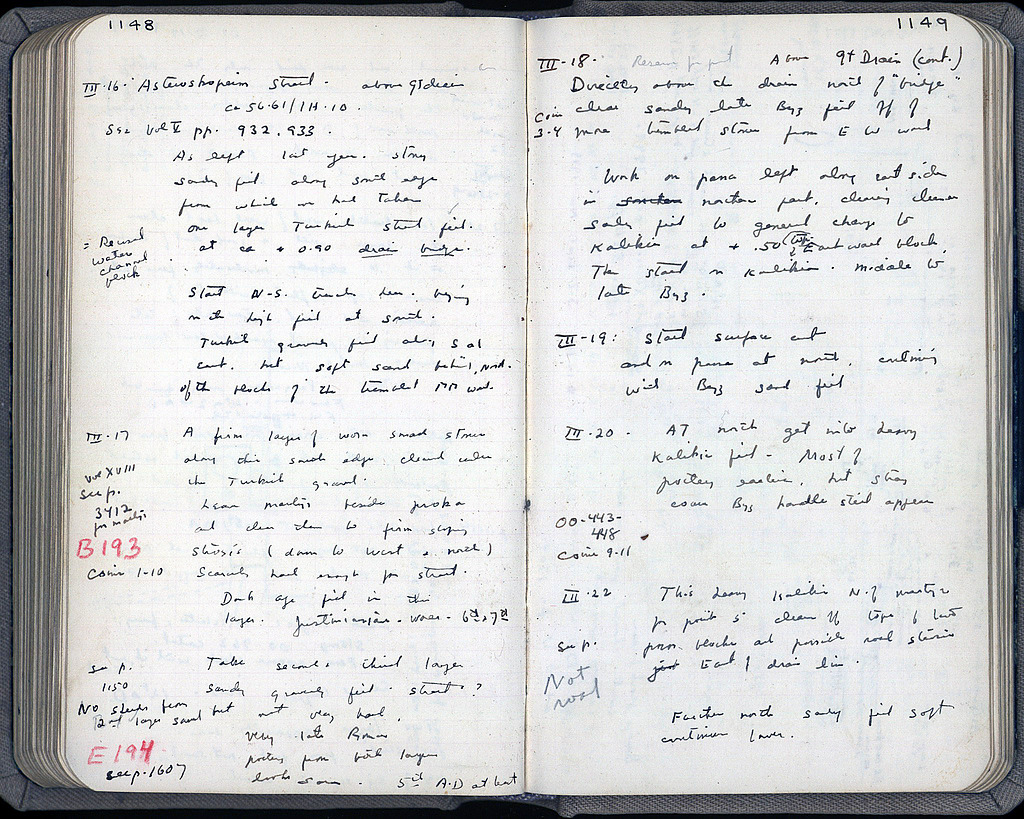 1148
III-16. Asteroskopeion Street. above Gt drain
ca 56.61/1H.10.
See Vol V pp. 932, 933.
As left last year. stony
sandy fill along south edge
from which we had taken
one layer Turkish street fill.
at ca + 0.90 drain bridge.
= Reused
water
channel
block
Start N-S. trench here. begin
with high fill at south.
Turkish gravelly fill along S at
east. but soft sand behind, north.
of the blocks of the tumbled wall.
III-17
A firm layer of worn small stones
along the south edge cleared under
the Turkish gravel.
Vol XVIII
see p.
3412
for
Leave beside
and clear then to firm sloping
B193
strosis (down to west & north)
Coins 1-10
Scarcely hard enough for street.
Dark age fill in this
layer. Justinianian - wares - 6th & 7th
see p.
1150
Take second & third layer
sandy gravelly fill. street?
No sherds from
2nd layer sand but
not very hard.
very late Roman
E194
see p. 1607
pottery from both layers
looks same. 5th A.D at least
1149
III-18. Above Gt Drain (cont.)
Directly above the drain north of "bridge"
Coin
3-4
clear sandy late Byz fill off of
more tumbled stones from E W wall
Work on pana left along east side
in northern part, clearing
sandy fill to general change to
Kalikia at + .50 East wall block.
The start in Kalikia. middle to
late Byz.
III-19: Start surface cut
and in pana at north, continuing
with Byz sand fill
III-20. At north get into heavy
Kalikia fill - Most of
pottery earlier, but stray
coarse Byz handle still appear
00-443-
448
Coins 9-11
III-22 This heavy Kalikia N. of
for point 5 clean off tops of last
see p.
poros blocks and possible road strosis
East of drain line.
Not
road
Further north sandy fill soft
continues lower.